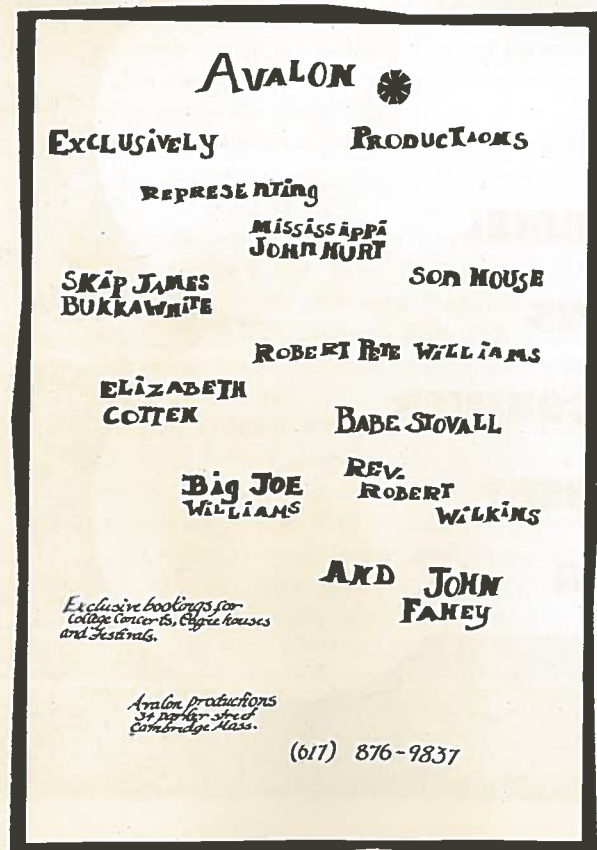 AVALON
EXCLUSIVELY PRODUCTIONS
REPRESENTING
MISSISSIPPI
JOHN HURT
SKIP JAMES
BUKKA WHITE
SON HOUSE
ROBERT PETE WILLIAMS
ELIZABETH
COTTEN
BABE STOVALL
BIG JOE
WILLIAMS
REV.
ROBERT
WILKINS
AND JOHN
FAHEY
Exclusive bookings for
College Concerts, Coffee houses
and Festivals.
Avalon productions
34 parker street
Cambridge Mass.
(617) 876-9837